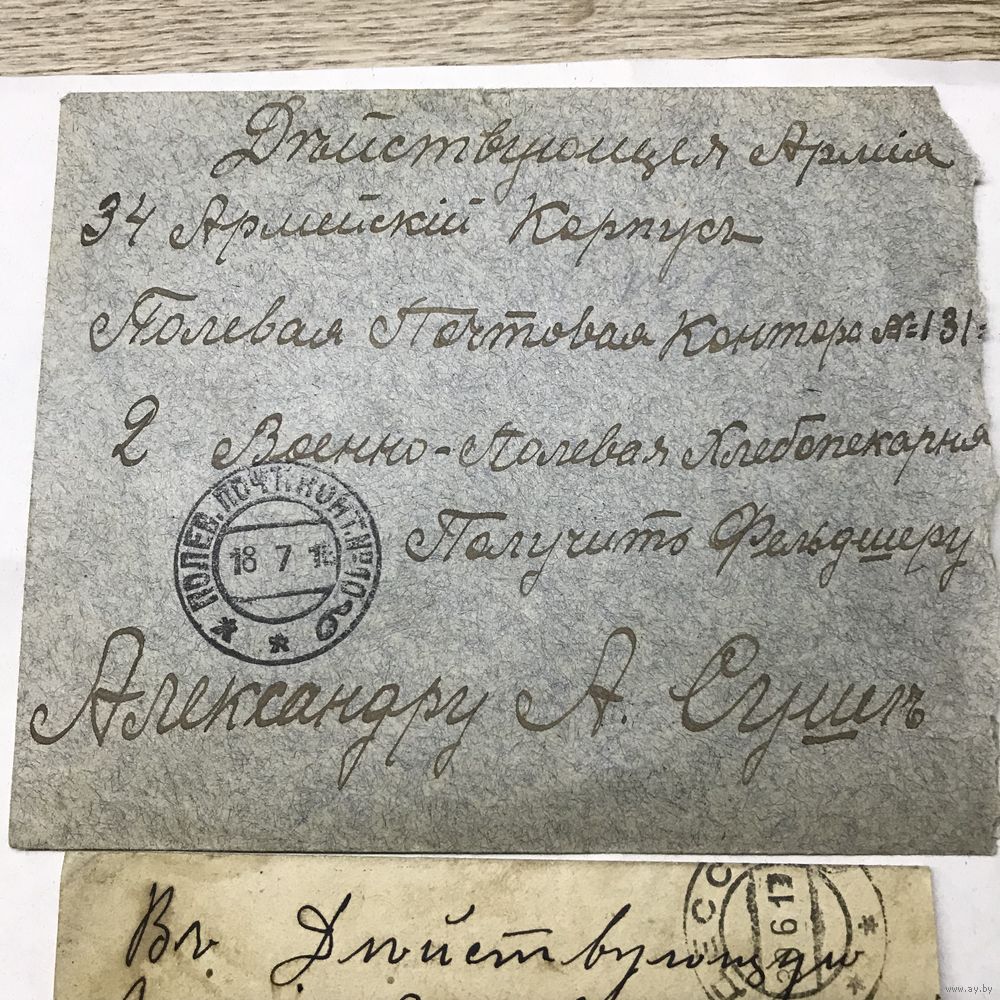 Дѣйствующея Армія
34 Армейскій Корпусъ
Полевая Почтовая Контора №131
2 Военно-Полевая Хлебопекарня
ПОЛЕВ. ПОЧТ. КОНТ. №
18 7 1
Получить Фельдшеру
Александру А.
Въ Дѣйствующую
ДЕСС
29 6 17
www.ay.by